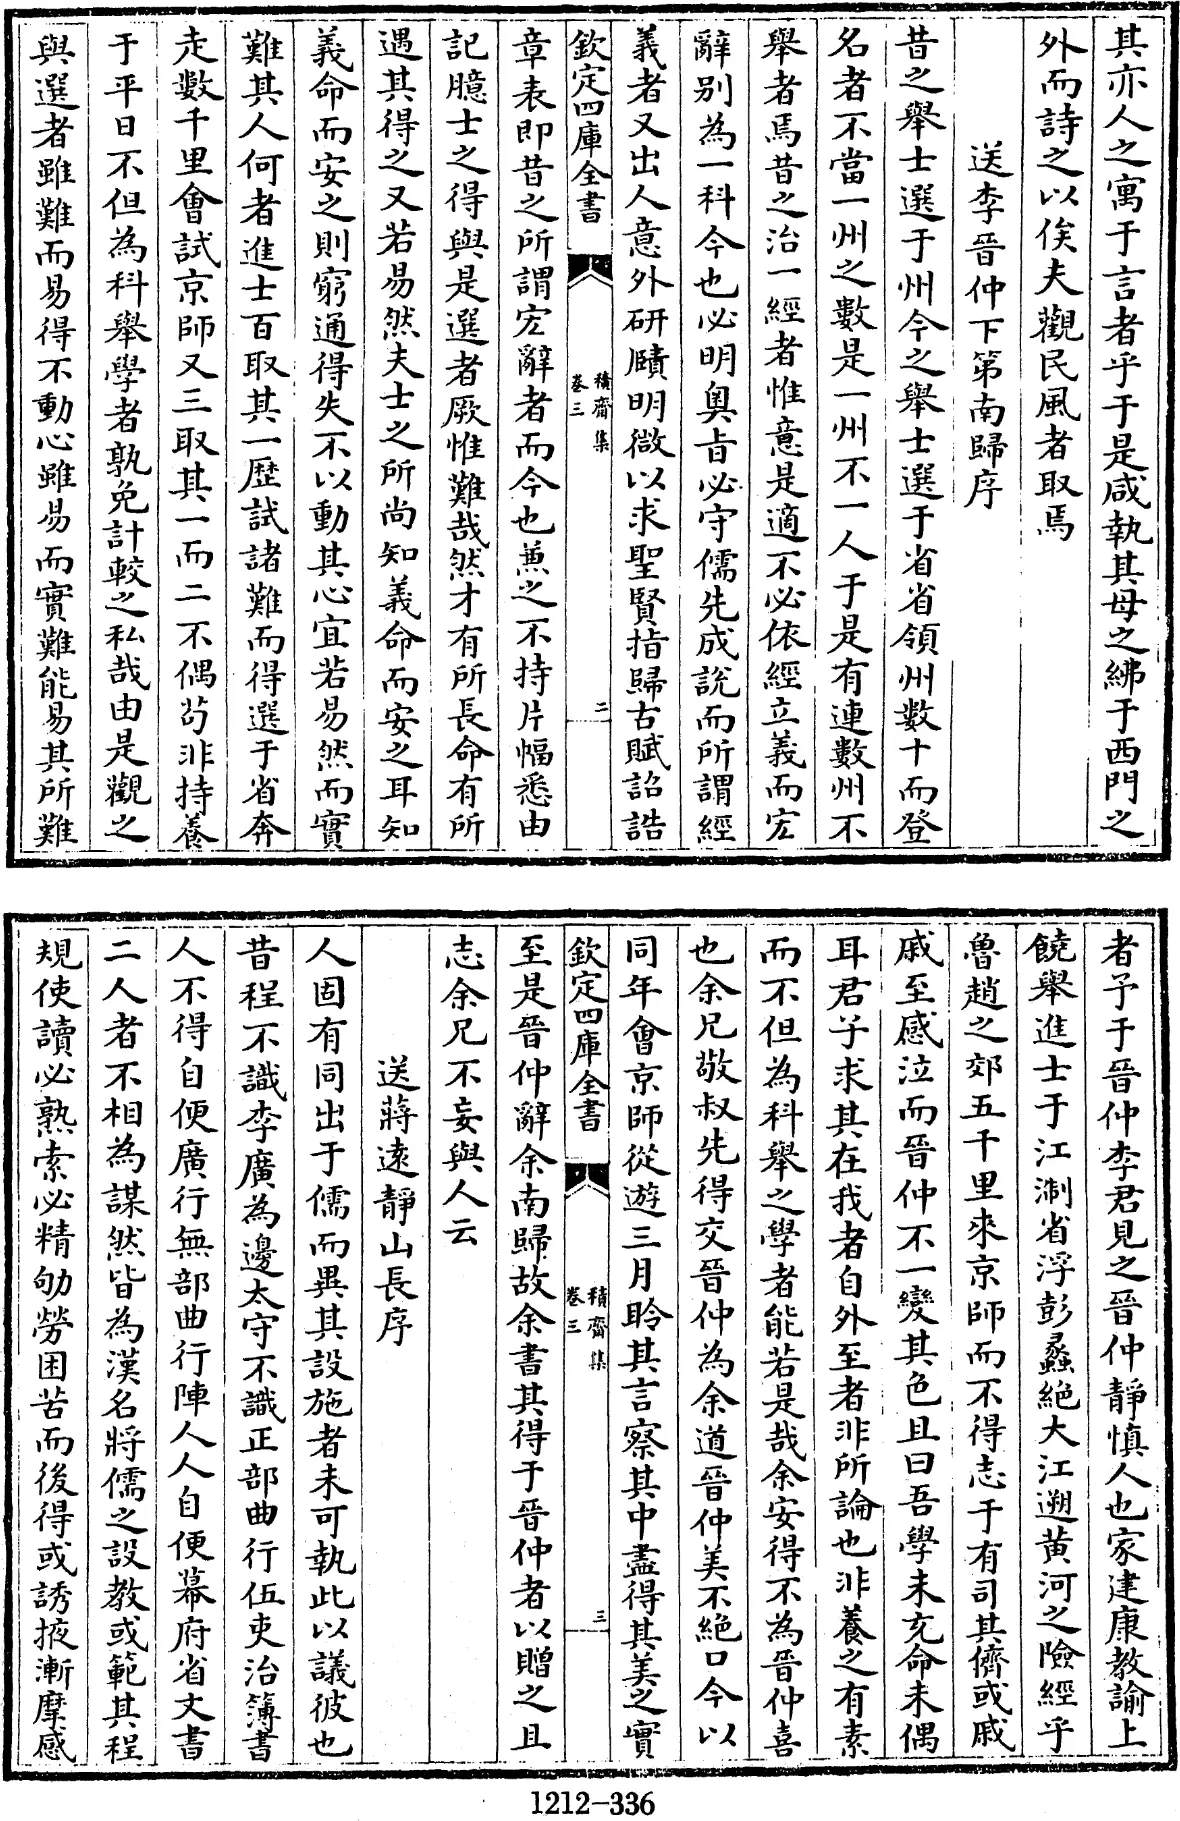 其亦人之寓于言者乎于是咸執其母之紼于西門之
外而詩之以俟夫觀民風者取焉
送李晉仲下第南歸序
昔之舉士選于州今之舉士選于省省領州數十而登
名者不當一州之數是一州不一人于是有連數州不
舉者焉昔之治一經者惟意是適不必依經立義而宏
辭別為一科今也必明奧旨必守儒先成說而所謂經
義者又出人意外研賾明微以求聖賢指歸古賦詔誥
欽定四庫全書
積齋集
卷三
二
章表即昔之所謂宏辭者而今也兼之不持片幅悉由
記臆士之得與是選者厥惟難哉然才有所長命有所
遇其得之又若易然夫士之所尚知義命而安之耳知
義命而安之則窮通得失不以動其心宜若易然而實
難其人何者進士百取其一歷試諸難而得選于省奔
走數千里會試京師又三取其一而二不偶茍非持養
于平日不但為科舉學者孰免計較之私哉由是觀之
與選者雖難而易得不動心雖易而實難能易其所難
者予于晉仲李君見之晉仲靜慎人也家建康教諭上
饒舉進士于江淛省浮彭蠡絕大江遡黃河之險經乎
魯趙之郊五千里來京師而不得志于有司其儕或戚
戚至感泣而晉仲不一變其色且曰吾學未充命未偶
耳君子求其在我者自外至者非所論也非養之有素
而不但為科舉之學者能若是哉余安得不為晉仲喜
也余兄敬叔先得交晉仲為余道晉仲美不絕口今以
同年會京師從遊三月聆其言察其中盡得其美之實
欽定四庫全書
積齋集
卷三
三
至是晉仲辭余南歸故余書其得于晉仲者以贈之且
志余兄不妄與人云
送蔣遠靜山長序
人固有同出于儒而異其設施者未可執此以議彼也
昔程不識李廣為邊太守不識正部曲行伍吏治簿書
人不得自便廣行無部曲行陣人人自便幕府省文書
二人者不相為謀然皆為漢名將儒之設教或範其程
規使讀必熟索必精劬勞困苦而後得或誘掖漸摩感
1212-336